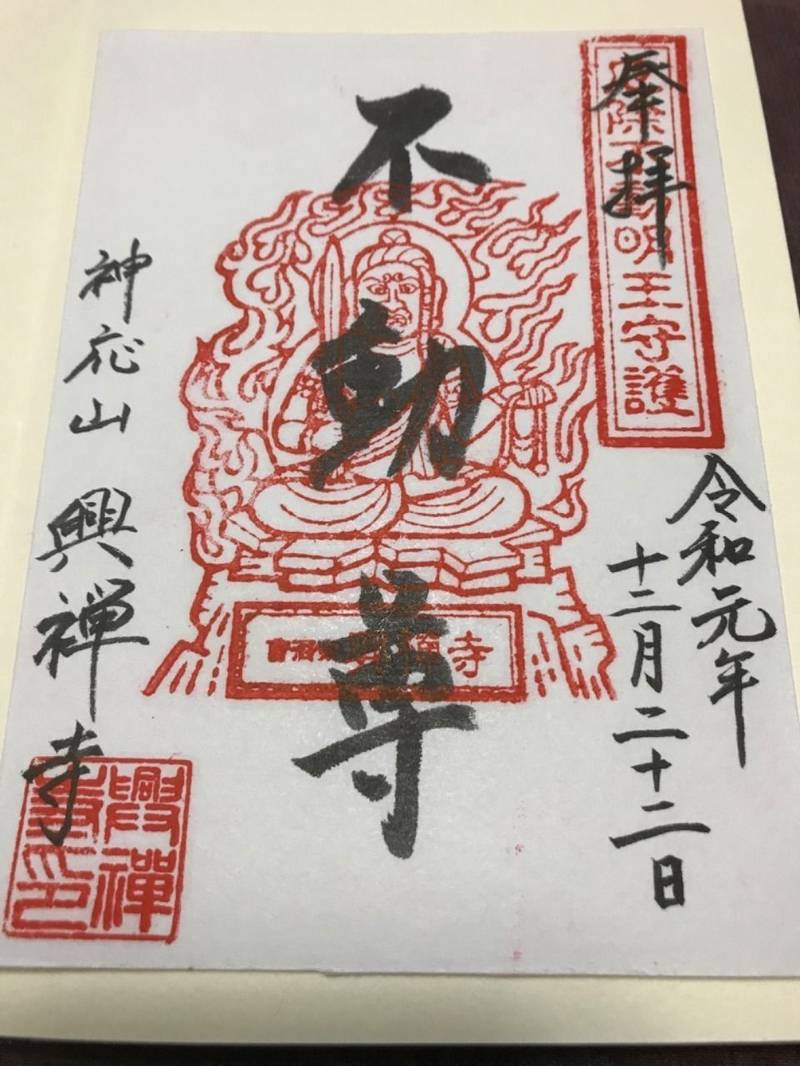 奉拝
明王守護
令和元年
十二月二十二日
不動尊
寺
神応山 興禅寺
興禅寺印